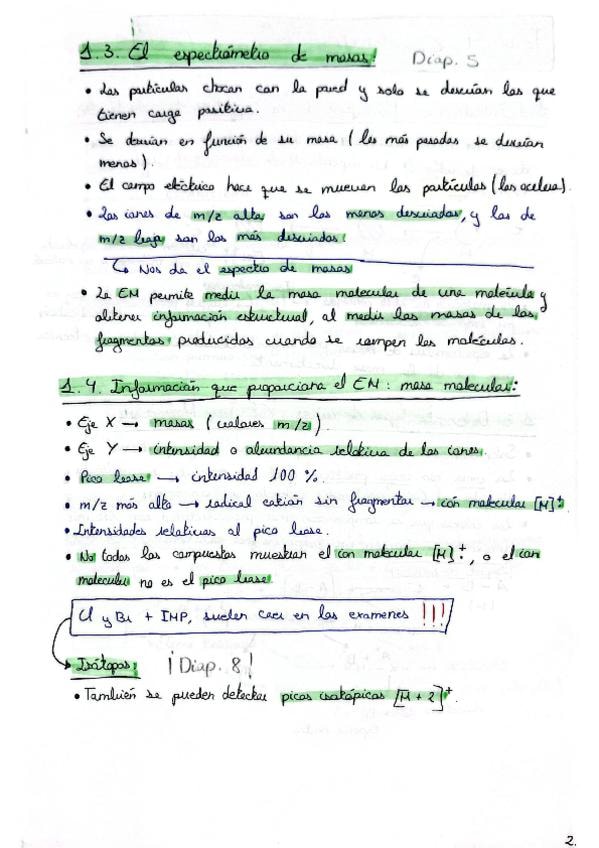 1.3. El espectrómetro de masas: Diap. 5
• Las partículas chocan con la pared y solo se desvían las que
tienen carga positiva.
• Se desvían en función de su masa (las más pesadas se desvían
menos).
• El campo eléctrico hace que se muevan las partículas (las acelera).
• Los iones de m/z alta son los menos desviados, y los de
m/z baja son los más desviados:
↳ Nos da el espectro de masas
• La EM permite medir la masa molecular de una molécula y
obtener información estructural, al medir las masas de los
fragmentos producidos cuando se rompen las moléculas.
1.4. Información que proporciona el EM: masa molecular:
• Eje X → masas (valores m/z).
• Eje Y → intensidad o abundancia relativa de los iones.
• Pico base → intensidad 100 %.
• m/z más alto → radical catión sin fragmentar → ión molecular [M]+.
• Intensidades relativas al pico base.
• No todos los compuestos muestran el ion molecular [M]+., o el ion
molecular no es el pico base.
Cl y Br + IMP, suelen caer en los exámenes !!!
Isótopos: ¡Diap. 8!
• También se pueden detectar picos isotópicos [M+2]+.
2.